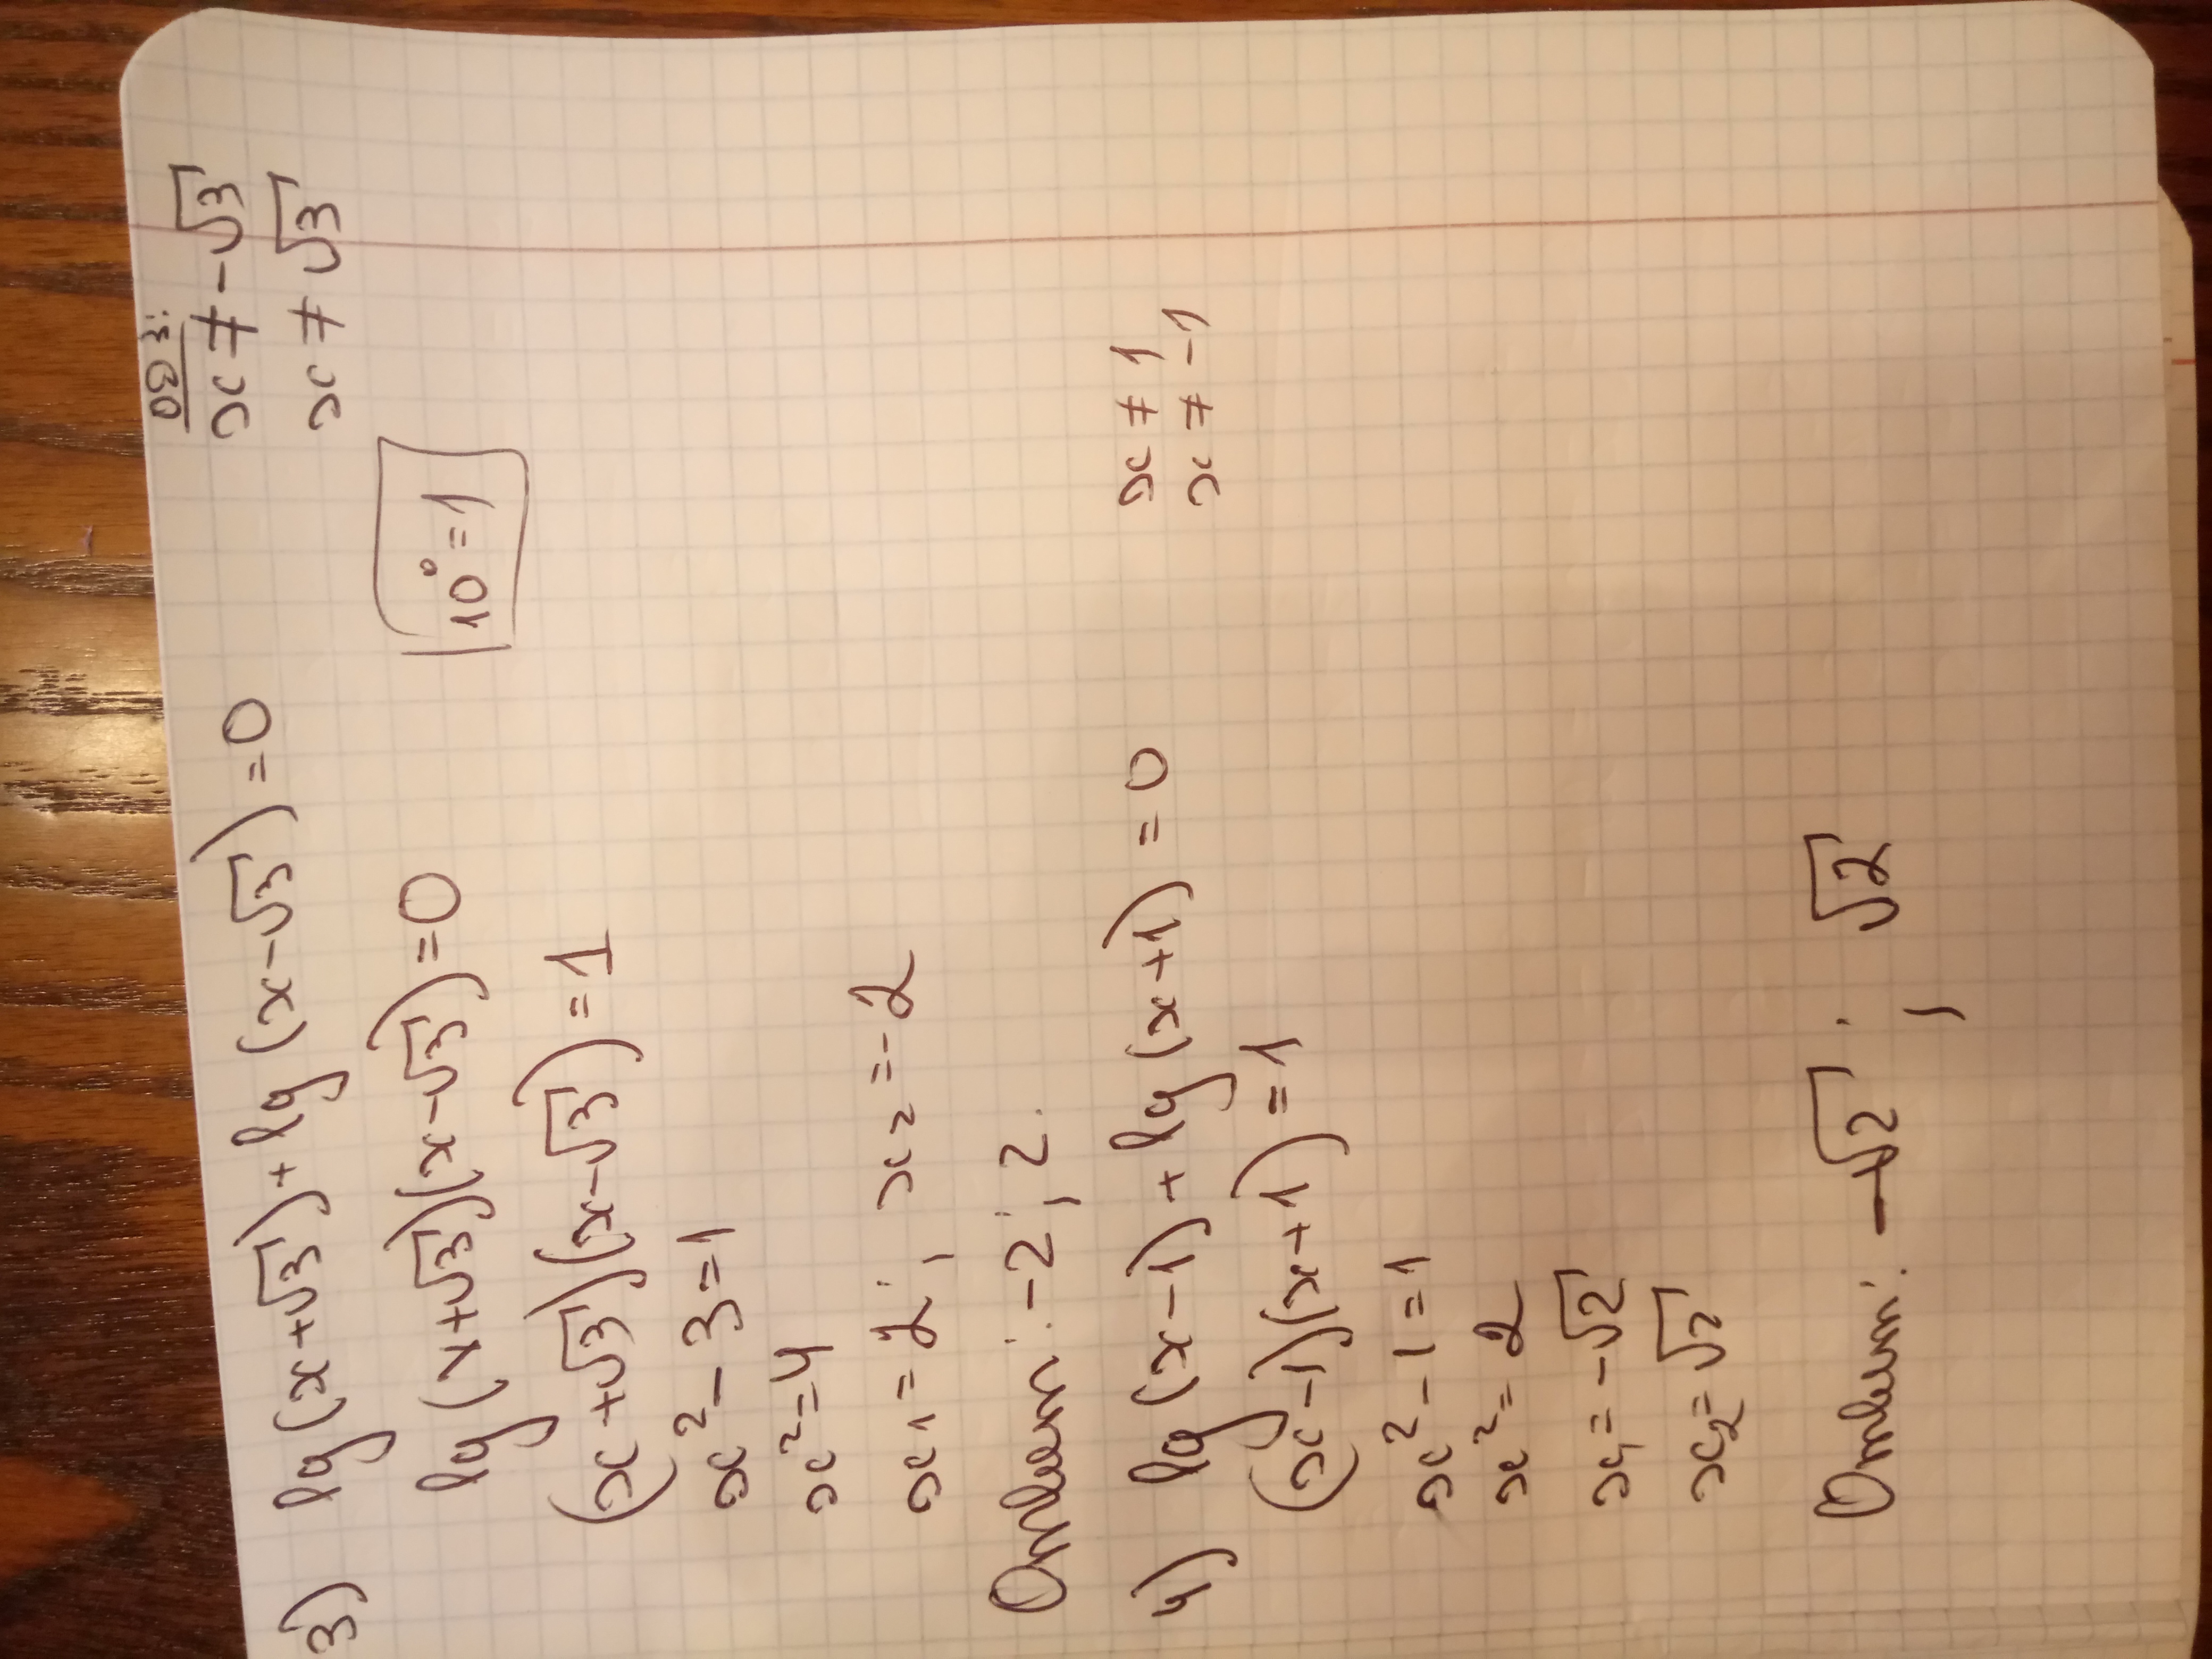 3) lg(x+√3)+lg(x-√3)=0
ОДЗ:
x ≠ -√3
x ≠ √3
lg(x+√3)(x-√3)=0
10⁰=1
(x+√3)(x-√3)=1
x²-3=1
x²=4
x₁=2; x₂=-2
Ответ: -2; 2.
4) lg(x-1)+lg(x+1)=0
x ≠ 1
x ≠ -1
(x-1)(x+1)=1
x²-1=1
x²=2
x₁=-√2
x₂=√2
Ответ: -√2; √2